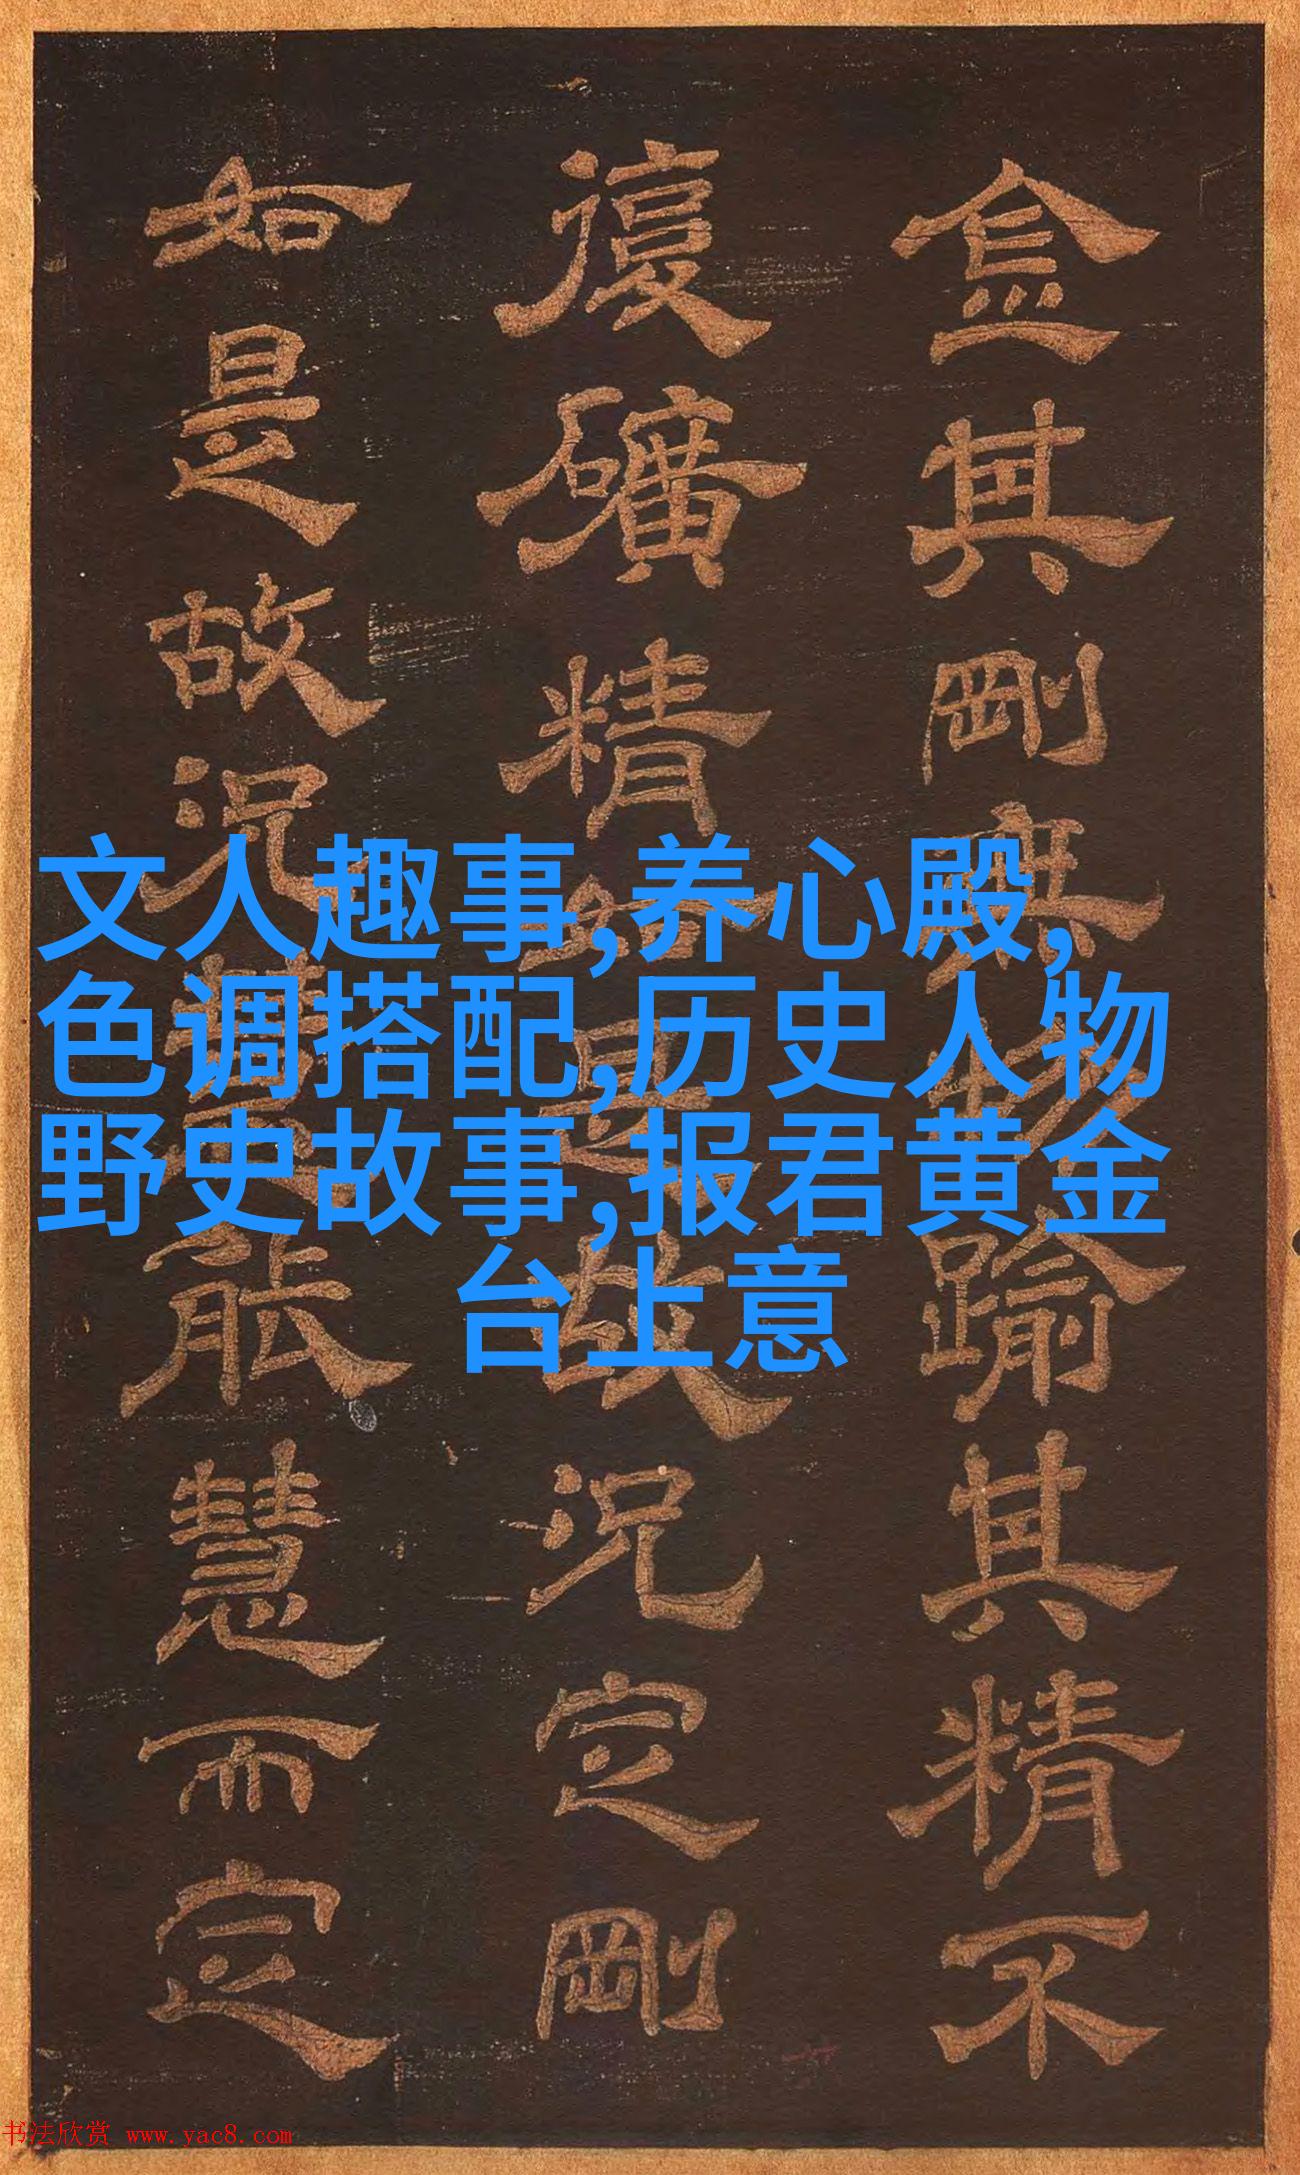 文人趣事,养心殿,
色调搭配,历史人物
野史故事,报君黄金
台上意
金其剛無物踰其精不
復礦精如是故況定剛
如是故況慧能慧而定
书法欣赏 www.yac8.com